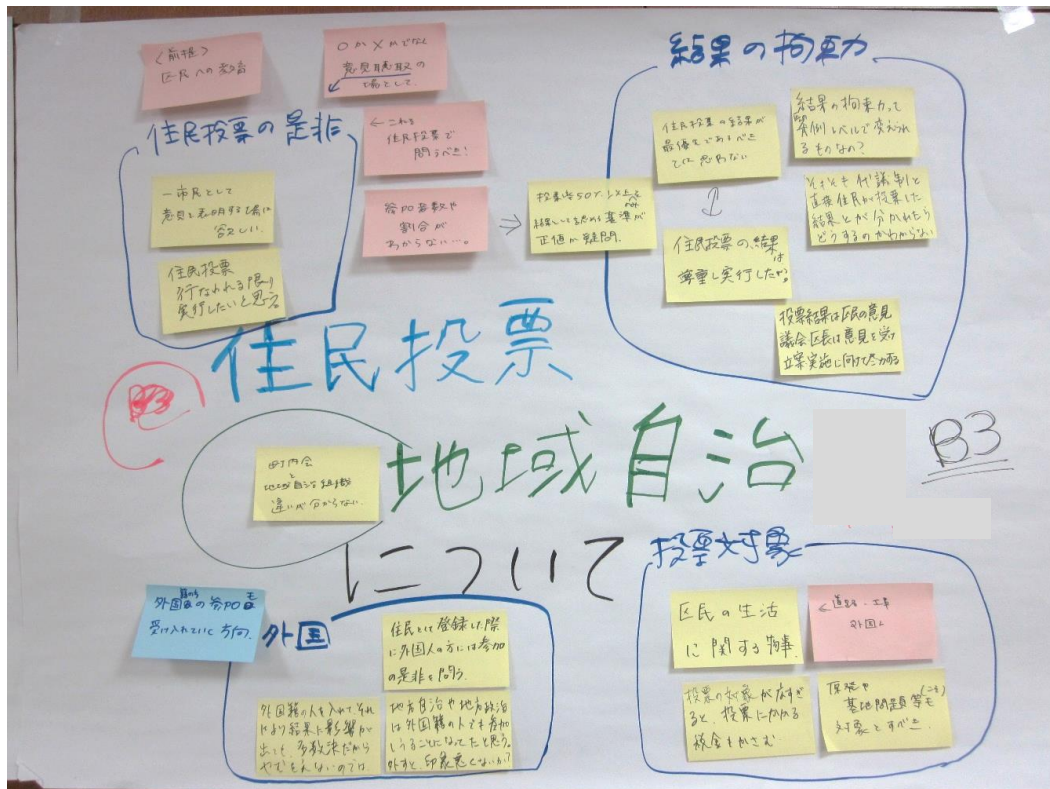 〈前提〉
区民への教育
〇か×かでなく
意見聴取の
場として
住民投票の是非
← これも
住民投票で
問うべき!
一市民として
意見を表明する場に
欲しい
住民投票
行なわれる限り
実行したいと思う。
参加者数や
割合が
わからない…。
⇒
投票率50%以上
結果して認める基準が
正確か疑問。
結果の拘束力
住民投票の結果が
最優先であるべき
とは思わない
結果の拘束力って
条例レベルで変えられ
るものなの?
そもそも代議制と
直接住民が投票した
結果とが分かれたら
どうするのかわからない
住民投票の結果は
尊重し実行したか。
投票結果は区民の意見
議会区長は意見を受け
立案実施に向けて尽力する
住民投票
B3
地域自治
B3
について
町内会
と
地域自治組織
違いが分からない
外国籍の参加も
受け入れていく方向。
外国
住民として登録した際
に外国人の方には参加
の是非を問う
外国籍の人を入れて、それ
により結果に影響が
出ても、多数決だから
やむをえないのでは
地方自治や地方政治
は外国籍の人でも参加
しうることになってたと思う。
外すと、印象悪くないか?
投票対象
区民の生活
に関する物事
← 道路・工事
外国人
投票の対象が広すぎ
ると、投票にかかる
税金もかさむ
原発や
基地問題等(こそ)も
対象とすべき